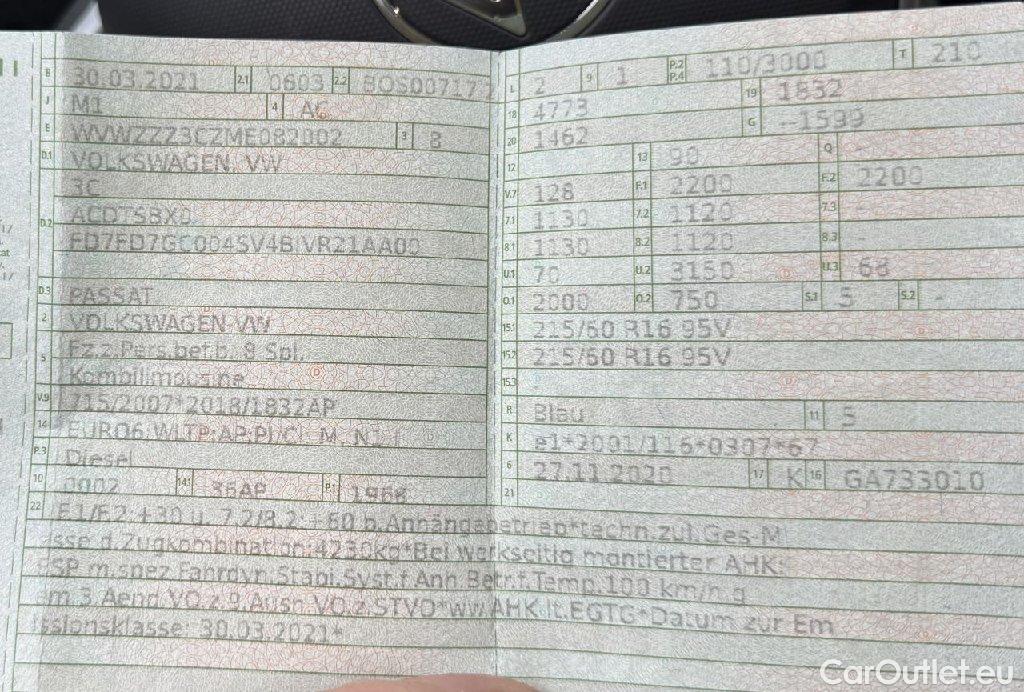 B 30.03.2021 2.1 0603 2.2 BOS00717
J M1 4 AC
E WVWZZZ3CZME082002 3 8
D.1 VOLKSWAGEN, VW
3C
D.2 ACDTSBX0
FD7FD7GC004SV4BIVR21AA00
D.3 PASSAT
2 VOLKSWAGEN-VW
5 Fz.z.Pers.bef.b. 8 Spl.
Kombilimousine
V.9 715/2007*2018/1832AP
14 EURO6;WLTP;AP;PI/CI; M, N1 I
P.3 Diesel
10 0002 14.1 36AP P.1 1968
22 F.1/F.2:+30 u. 7.2/8.2:+60 b.Anhängebetrieb*techn.zul.Ges-M
asse.d.Zugkombination:4230kg*Bei werkseitig montierter AHK:
ESP m.spez.Fahrdyn.Stabi.Syst.f.Anh.Betr.f.Temp.100 km/h g
em.3.Aend.VO.z.9.Ausn.VO.z.STVO*ww.AHK.lt.EGTG*Datum zur Em
issionsklasse: 30.03.2021*
L 2 9 1 P.2 P.4 110/3000 T 210
18 4773 19 1832
20 1462 G --1599
12 13 90 Q -
V.7 128 F.1 2200 F.2 2200
7.1 1130 7.2 1120 7.3 -
8.1 1130 8.2 1120 8.3 -
U.1 70 U.2 3150 U.3 68
O.1 2000 O.2 750 S.1 5 S.2 -
15.1 215/60 R16 95V
15.2 215/60 R16 95V
15.3
R Blau 11 5
K e1*2001/116*0307*67
6 27.11.2020 17 K 16 GA733010
21
CarOutlet.eu